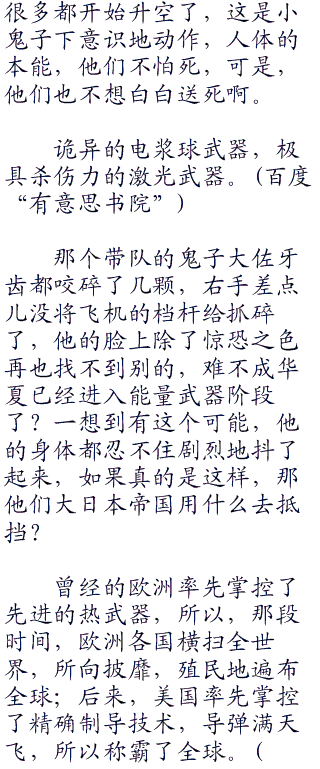 很多都开始升空了，这是小
鬼子下意识地动作，人体的
本能，他们不怕死，可是，
他们也不想白白送死啊。
诡异的电浆球武器，极
具杀伤力的激光武器。(百度
“有意思书院”)
那个带队的鬼子大佐牙
齿都咬碎了几颗，右手差点
儿没将飞机的档杆给抓碎
了，他的脸上除了惊恐之色
再也找不到别的，难不成华
夏已经进入能量武器阶段
了？一想到有这个可能，他
的身体都忍不住剧烈地抖了
起来，如果真的是这样，那
他们大日本帝国用什么去抵
挡？
曾经的欧洲率先掌控了
先进的热武器，所以，那段
时间，欧洲各国横扫全世
界，所向披靡，殖民地遍布
全球；后来，美国率先掌控
了精确制导技术，导弹满天
飞，所以称霸了全球。(